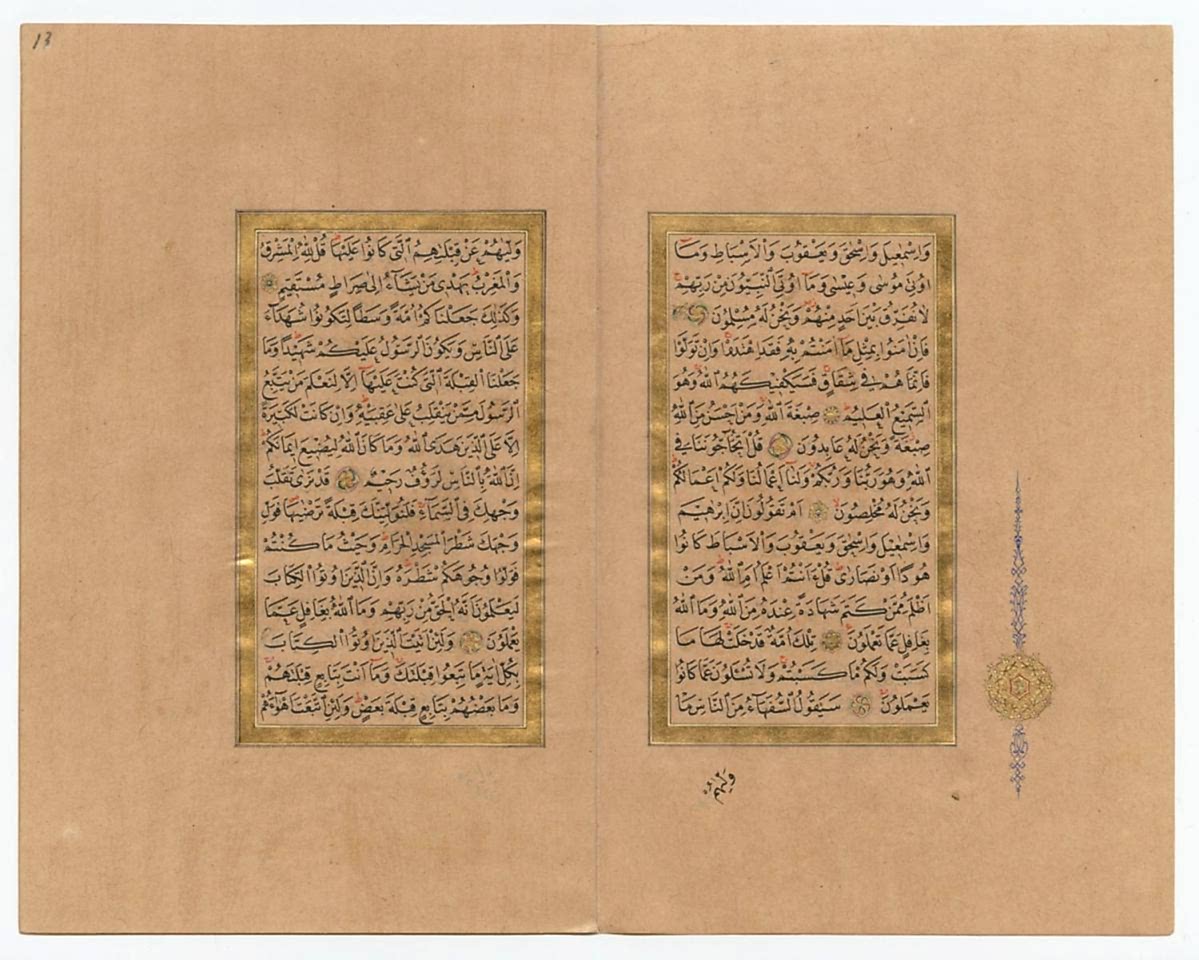 وَاِسْمٰعِيلَ وَاِسْحٰقَ وَيَعْقُوبَ وَالْاَسْبَاطِ وَمَٓا
اُوتِىَ مُوسٰى وَعِيسٰى وَمَٓا اُوتِىَ النَّبِيُّونَ مِنْ رَبِّهِمْ
لَا نُفَرِّقُ بَيْنَ اَحَدٍ مِنْهُمْ وَنَحْنُ لَهُ مُسْلِمُونَ
فَاِنْ اٰمَنُوا بِمِثْلِ مَٓا اٰمَنْتُمْ بِهِ فَقَدِ اهْتَدَوْا وَاِنْ تَوَلَّوْا
فَاِنَّمَا هُمْ فِي شِقَاقٍ فَسَيَكْفِيكَهُمُ اللّٰهُ وَهُوَ
السَّمِيعُ الْعَلِيمُ صِبْغَةَ اللّٰهِ وَمَنْ اَحْسَنُ مِنَ اللّٰهِ
صِبْغَةً وَنَحْنُ لَهُ عَابِدُونَ قُلْ اَتُحَٓاجُّونَنَا فِي
اللّٰهِ وَهُوَ رَبُّنَا وَرَبُّكُمْ وَلَنَٓا اَعْمَالُنَا وَلَكُمْ اَعْمَالُكُمْ
وَنَحْنُ لَهُ مُخْلِصُونَ اَمْ تَقُولُونَ اِنَّ اِبْرٰهِيمَ
وَاِسْمٰعِيلَ وَاِسْحٰقَ وَيَعْقُوبَ وَالْاَسْبَاطَ كَانُوا
هُودًا اَوْ نَصَارٰى قُلْ ءَاَنْتُمْ اَعْلَمُ اَمِ اللّٰهُ وَمَنْ
اَظْلَمُ مِمَّنْ كَتَمَ شَهَادَةً عِنْدَهُ مِنَ اللّٰهِ وَمَا اللّٰهُ
بِغَافِلٍ عَمَّا تَعْمَلُونَ تِلْكَ اُمَّةٌ قَدْ خَلَتْ لَهَا مَا
كَسَبَتْ وَلَكُمْ مَا كَسَبْتُمْ وَلَا تُسْـَٔلُونَ عَمَّا كَانُوا
يَعْمَلُونَ سَيَقُولُ السُّفَهَٓاءُ مِنَ النَّاسِ مَا
وليهم
13
وَلّٰيهُمْ عَنْ قِبْلَتِهِمُ الَّتِى كَانُوا عَلَيْهَا قُلْ لِلّٰهِ الْمَشْرِقُ
وَالْمَغْرِبُ يَهْدِى مَنْ يَشَٓاءُ اِلٰى صِرَاطٍ مُسْتَقِيمٍ
وَكَذٰلِكَ جَعَلْنَاكُمْ اُمَّةً وَسَطًا لِتَكُونُوا شُهَدَٓاءَ
عَلَى النَّاسِ وَيَكُونَ الرَّسُولُ عَلَيْكُمْ شَهِيدًا وَمَا
جَعَلْنَا الْقِبْلَةَ الَّتِى كُنْتَ عَلَيْهَٓا اِلَّا لِنَعْلَمَ مَنْ يَتَّبِعُ
الرَّسُولَ مِمَّنْ يَنْقَلِبُ عَلٰى عَقِبَيْهِ وَاِنْ كَانَتْ لَكَبِيرَةً
اِلَّا عَلَى الَّذِينَ هَدَى اللّٰهُ وَمَا كَانَ اللّٰهُ لِيُضِيعَ اِيمَانَكُمْ
اِنَّ اللّٰهَ بِالنَّاسِ لَرَؤُفٌ رَحِيمٌ قَدْ نَرٰى تَقَلُّبَ
وَجْهِكَ فِى السَّمَٓاءِ فَلَنُوَلِّيَنَّكَ قِبْلَةً تَرْضٰيهَا فَوَلِّ
وَجْهَكَ شَطْرَ الْمَسْجِدِ الْحَرَامِ وَحَيْثُ مَا كُنْتُمْ
فَوَلُّوا وُجُوهَكُمْ شَطْرَهُ وَاِنَّ الَّذِينَ اُوتُوا الْكِتَابَ
لَيَعْلَمُونَ اَنَّهُ الْحَقُّ مِنْ رَبِّهِمْ وَمَا اللّٰهُ بِغَافِلٍ عَمَّا
يَعْمَلُونَ وَلَئِنْ اَتَيْتَ الَّذِينَ اُوتُوا الْكِتَابَ
بِكُلِّ اٰيَةٍ مَا تَبِعُوا قِبْلَتَكَ وَمَٓا اَنْتَ بِتَابِعٍ قِبْلَتَهُمْ
وَمَا بَعْضُهُمْ بِتَابِعٍ قِبْلَةَ بَعْضٍ وَلَئِنِ اتَّبَعْتَ اَهْوَٓاءَهُمْ